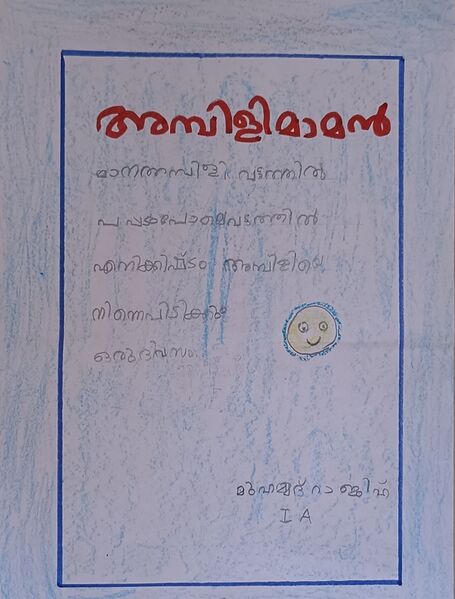 അമ്പിളിമാമൻ
മാനത്തമ്പിളി വട്ടത്തിൽ
പപ്പടംപോലെവട്ടത്തിൽ
എനിക്കിഷ്ടം അമ്പിളിയെ
നിന്നെപിടിക്കും
ഒരുദിവസം
മുഹമ്മദ്
I A